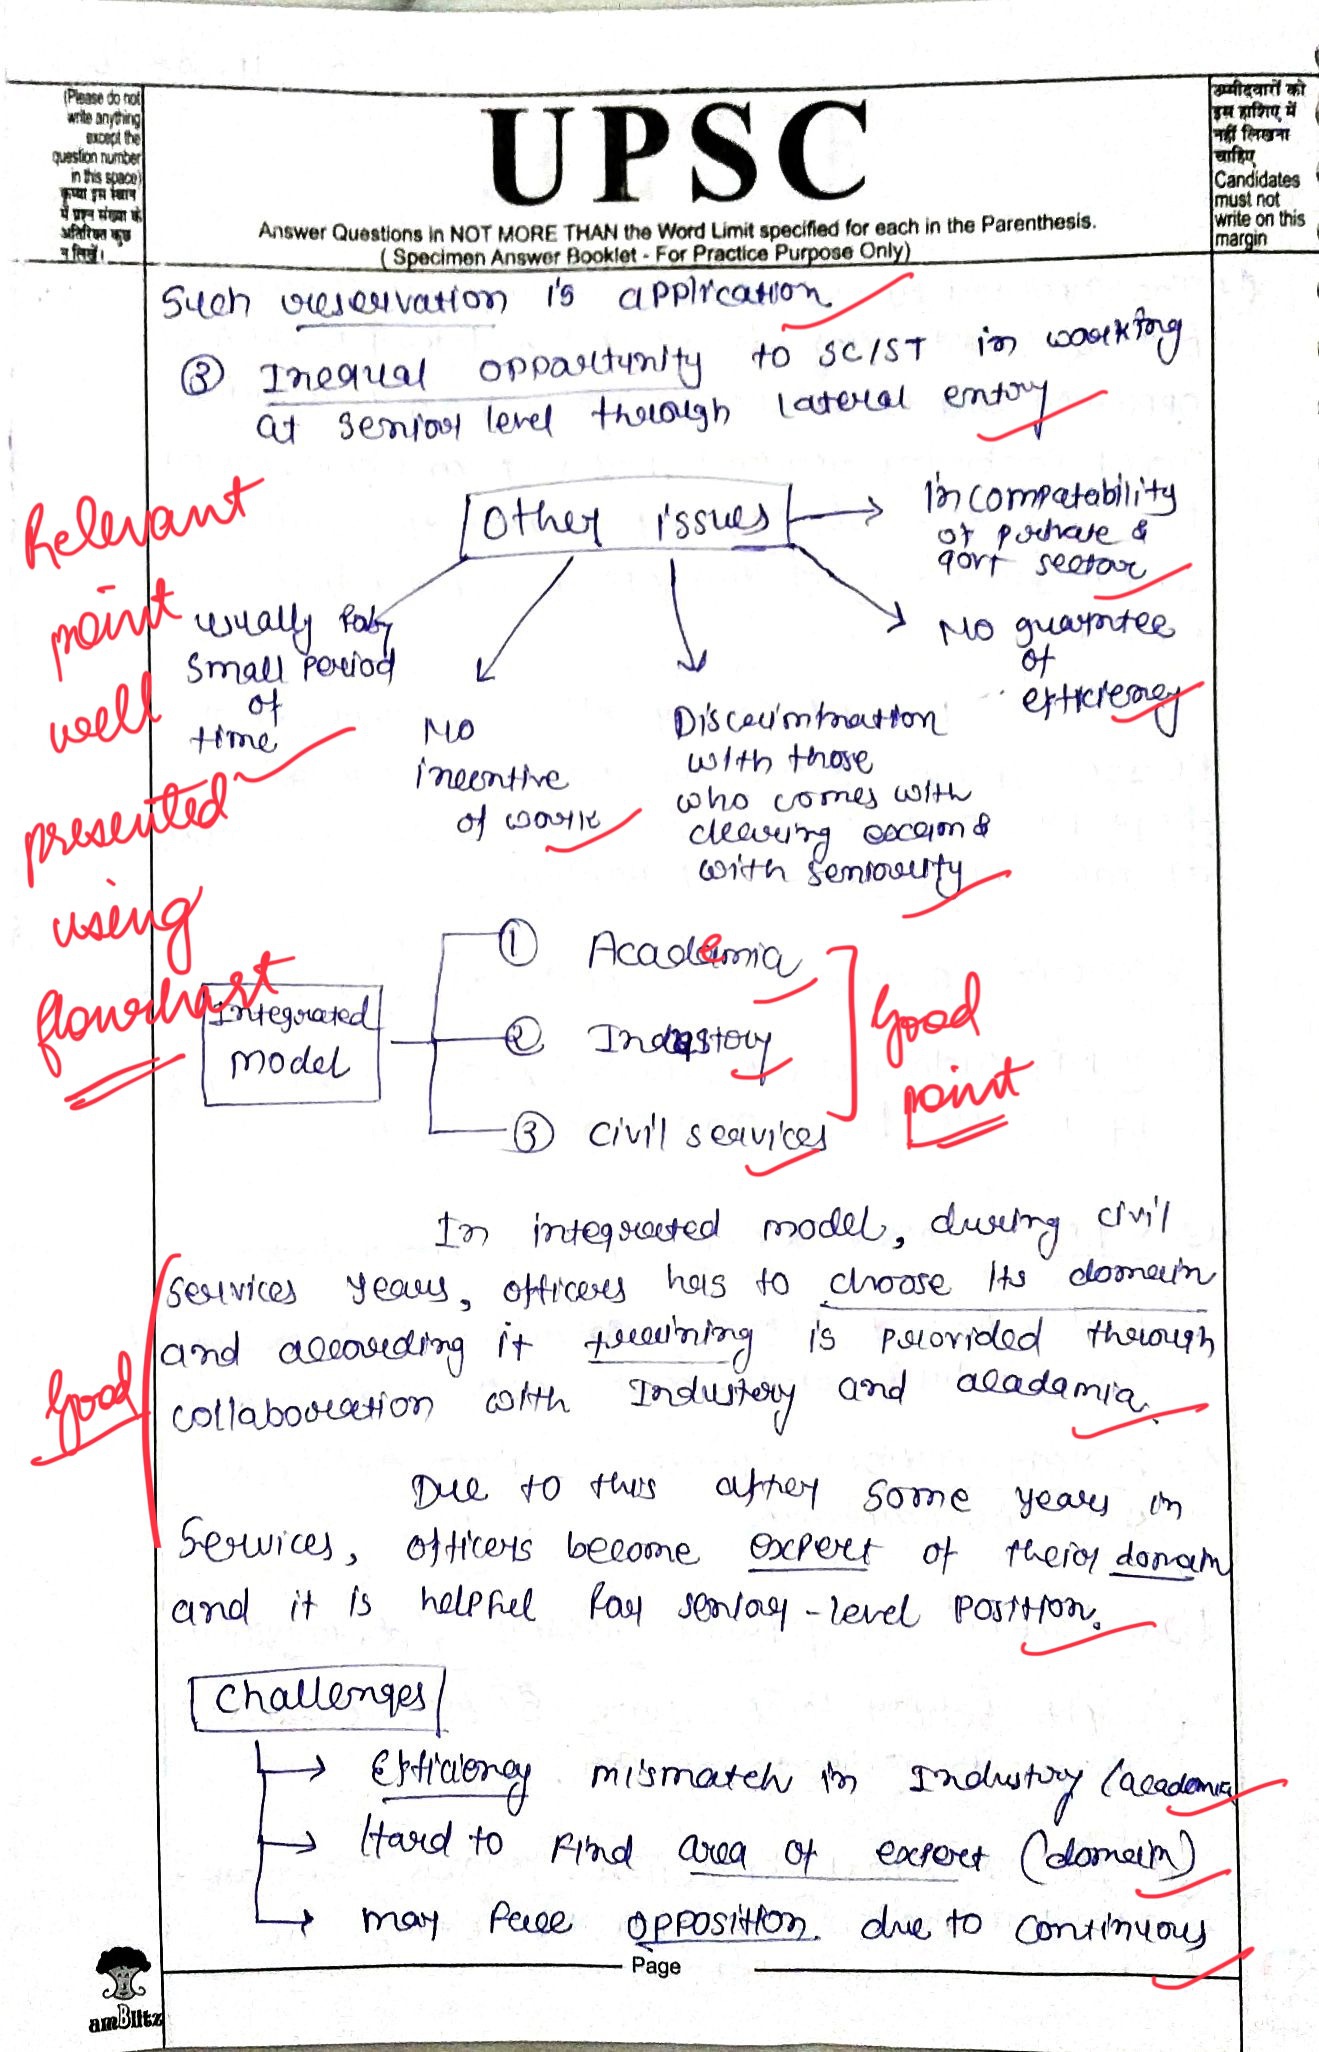 (Please do not
write anything
except the
question number
in this space)
कृपया इस स्थान
में प्रश्न संख्या के
अतिरिक्त कुछ
न लिखें।
UPSC
Answer Questions in NOT MORE THAN the Word Limit specified for each in the Parenthesis.
( Specimen Answer Booklet - For Practice Purpose Only)
उम्मीदवारों को
इस हाशिए में
नहीं लिखना
चाहिए
Candidates
must not
write on this
margin
Such reservation is application
③ Inequal opportunity to SC/ST in working
at senior level through lateral entry
Other issues
Incompatability
of private &
govt sector
No guarntee
of
efficieney
Discrimination
with those
who comes with
clearing exam &
with seniority
No
incentive
of work
usually for
small period
of
time
Relevant
point
well
presented
using
flowchart
Integrated
model
① Academia
② Industry
③ civil services
Good
point
In integrated model, during civil
services years, officers has to choose its domain
and according it training is provided through
collaboration with Industry and acadamia.
Good
Due to this after some years in
Services, officers become expert of their domain
and it is helpful for senior-level position.
Challenges
Efficiency mismatch in Industry/academia
Hard to Find area of expert (domain)
may face opposition due to continuous
Page
amBlitz